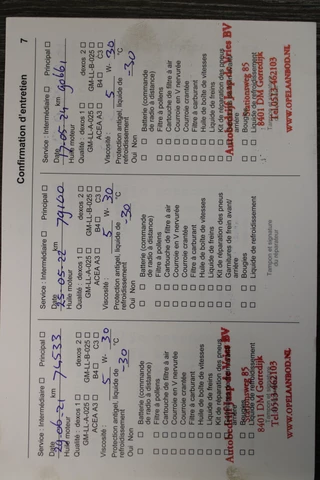 Confirmation d'entretien 7
Service : Intermédiaire Principal
Date 20-06-21 km 74533
Huile moteur
Qualité : dexos 1 dexos 2
GM-LL-A-025 GM-LL-B-025
ACEA A3 B4 C3
Viscosité : 5 W- 30
Protection antigel, liquide de
refroidissement -30 °C
Oui Non
Batterie (commande
de radio à distance)
Filtre à pollens
Cartouche de filtre à air
Courroie en V nervurée
Courroie crantée
Filtre à carburant
Huile de boîte de vitesses
Liquide de freins
Kit de réparation des pneus
Bougies
Liquide de refroidissement
Stationsweg 85
8401 DM Gorredijk
Tel.0513-462103
WWW.OPELAANBOD.NL
Service : Intermédiaire Principal
Date 25-05-22 km 79100
Huile moteur
Qualité : dexos 1 dexos 2
GM-LL-A-025 GM-LL-B-025
ACEA A3 B4 C3
Viscosité : 5 W- 30
Protection antigel, liquide de
refroidissement -30 °C
Oui Non
Batterie (commande
de radio à distance)
Filtre à pollens
Cartouche de filtre à air
Courroie en V nervurée
Courroie crantée
Filtre à carburant
Huile de boîte de vitesses
Liquide de freins
Kit de réparation des pneus
Garnitures de frein avant/
arrière
Bougies
Liquide de refroidissement
Tampon et signature
du réparateur
Service : Intermédiaire Principal
Date 17-05-24 km 90661
Huile moteur
Qualité : dexos 1 dexos 2
GM-LL-A-025 GM-LL-B-025
ACEA A3 B4 C3
Viscosité : 5 W- 30
Protection antigel, liquide de
refroidissement -30 °C
Oui Non
Batterie (commande
de radio à distance)
Filtre à pollens
Cartouche de filtre à air
Courroie en V nervurée
Courroie crantée
Filtre à carburant
Huile de boîte de vitesses
Liquide de freins
Kit de réparation des pneus
arrière
Bougies
Liquide de refroidissement
Stationsweg 85
8401 DM Gorredijk
Tel.0513-462103
WWW.OPELAANBOD.NL